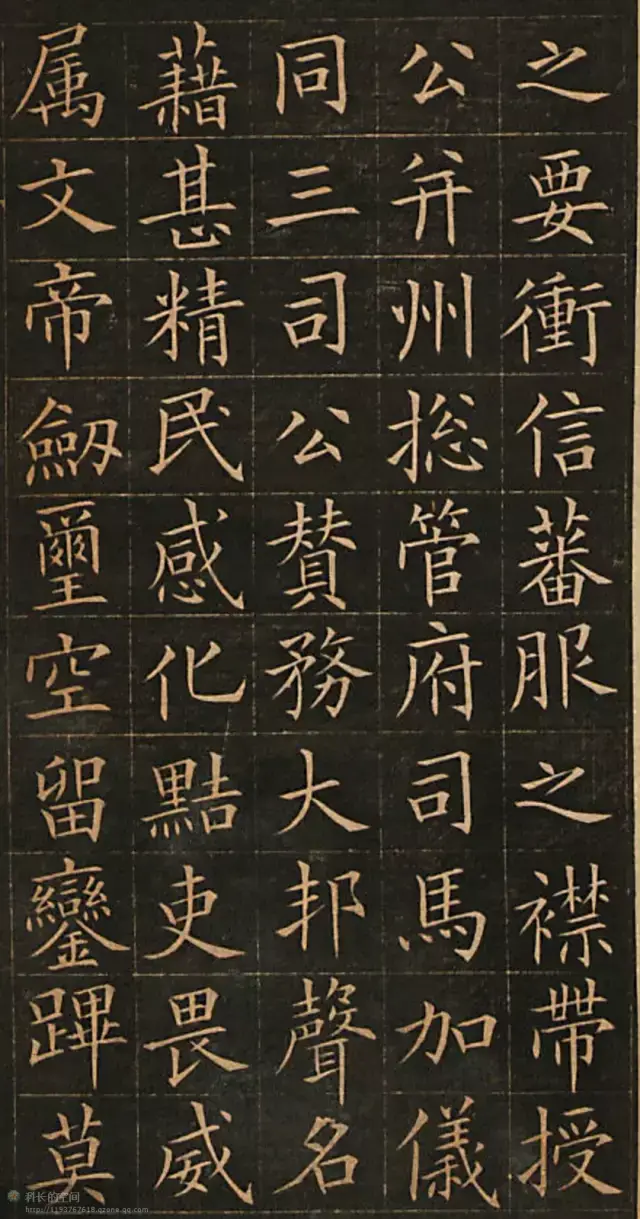 之要衝信蕃服之襟帶授
公并州揔管府司馬加儀
同三司公賛務大邦聲名
藉甚精民感化黠吏畏威
属文帝劒璽空留鑾蹕莫
科长的空间
http://1193767618.qzone.qq.com